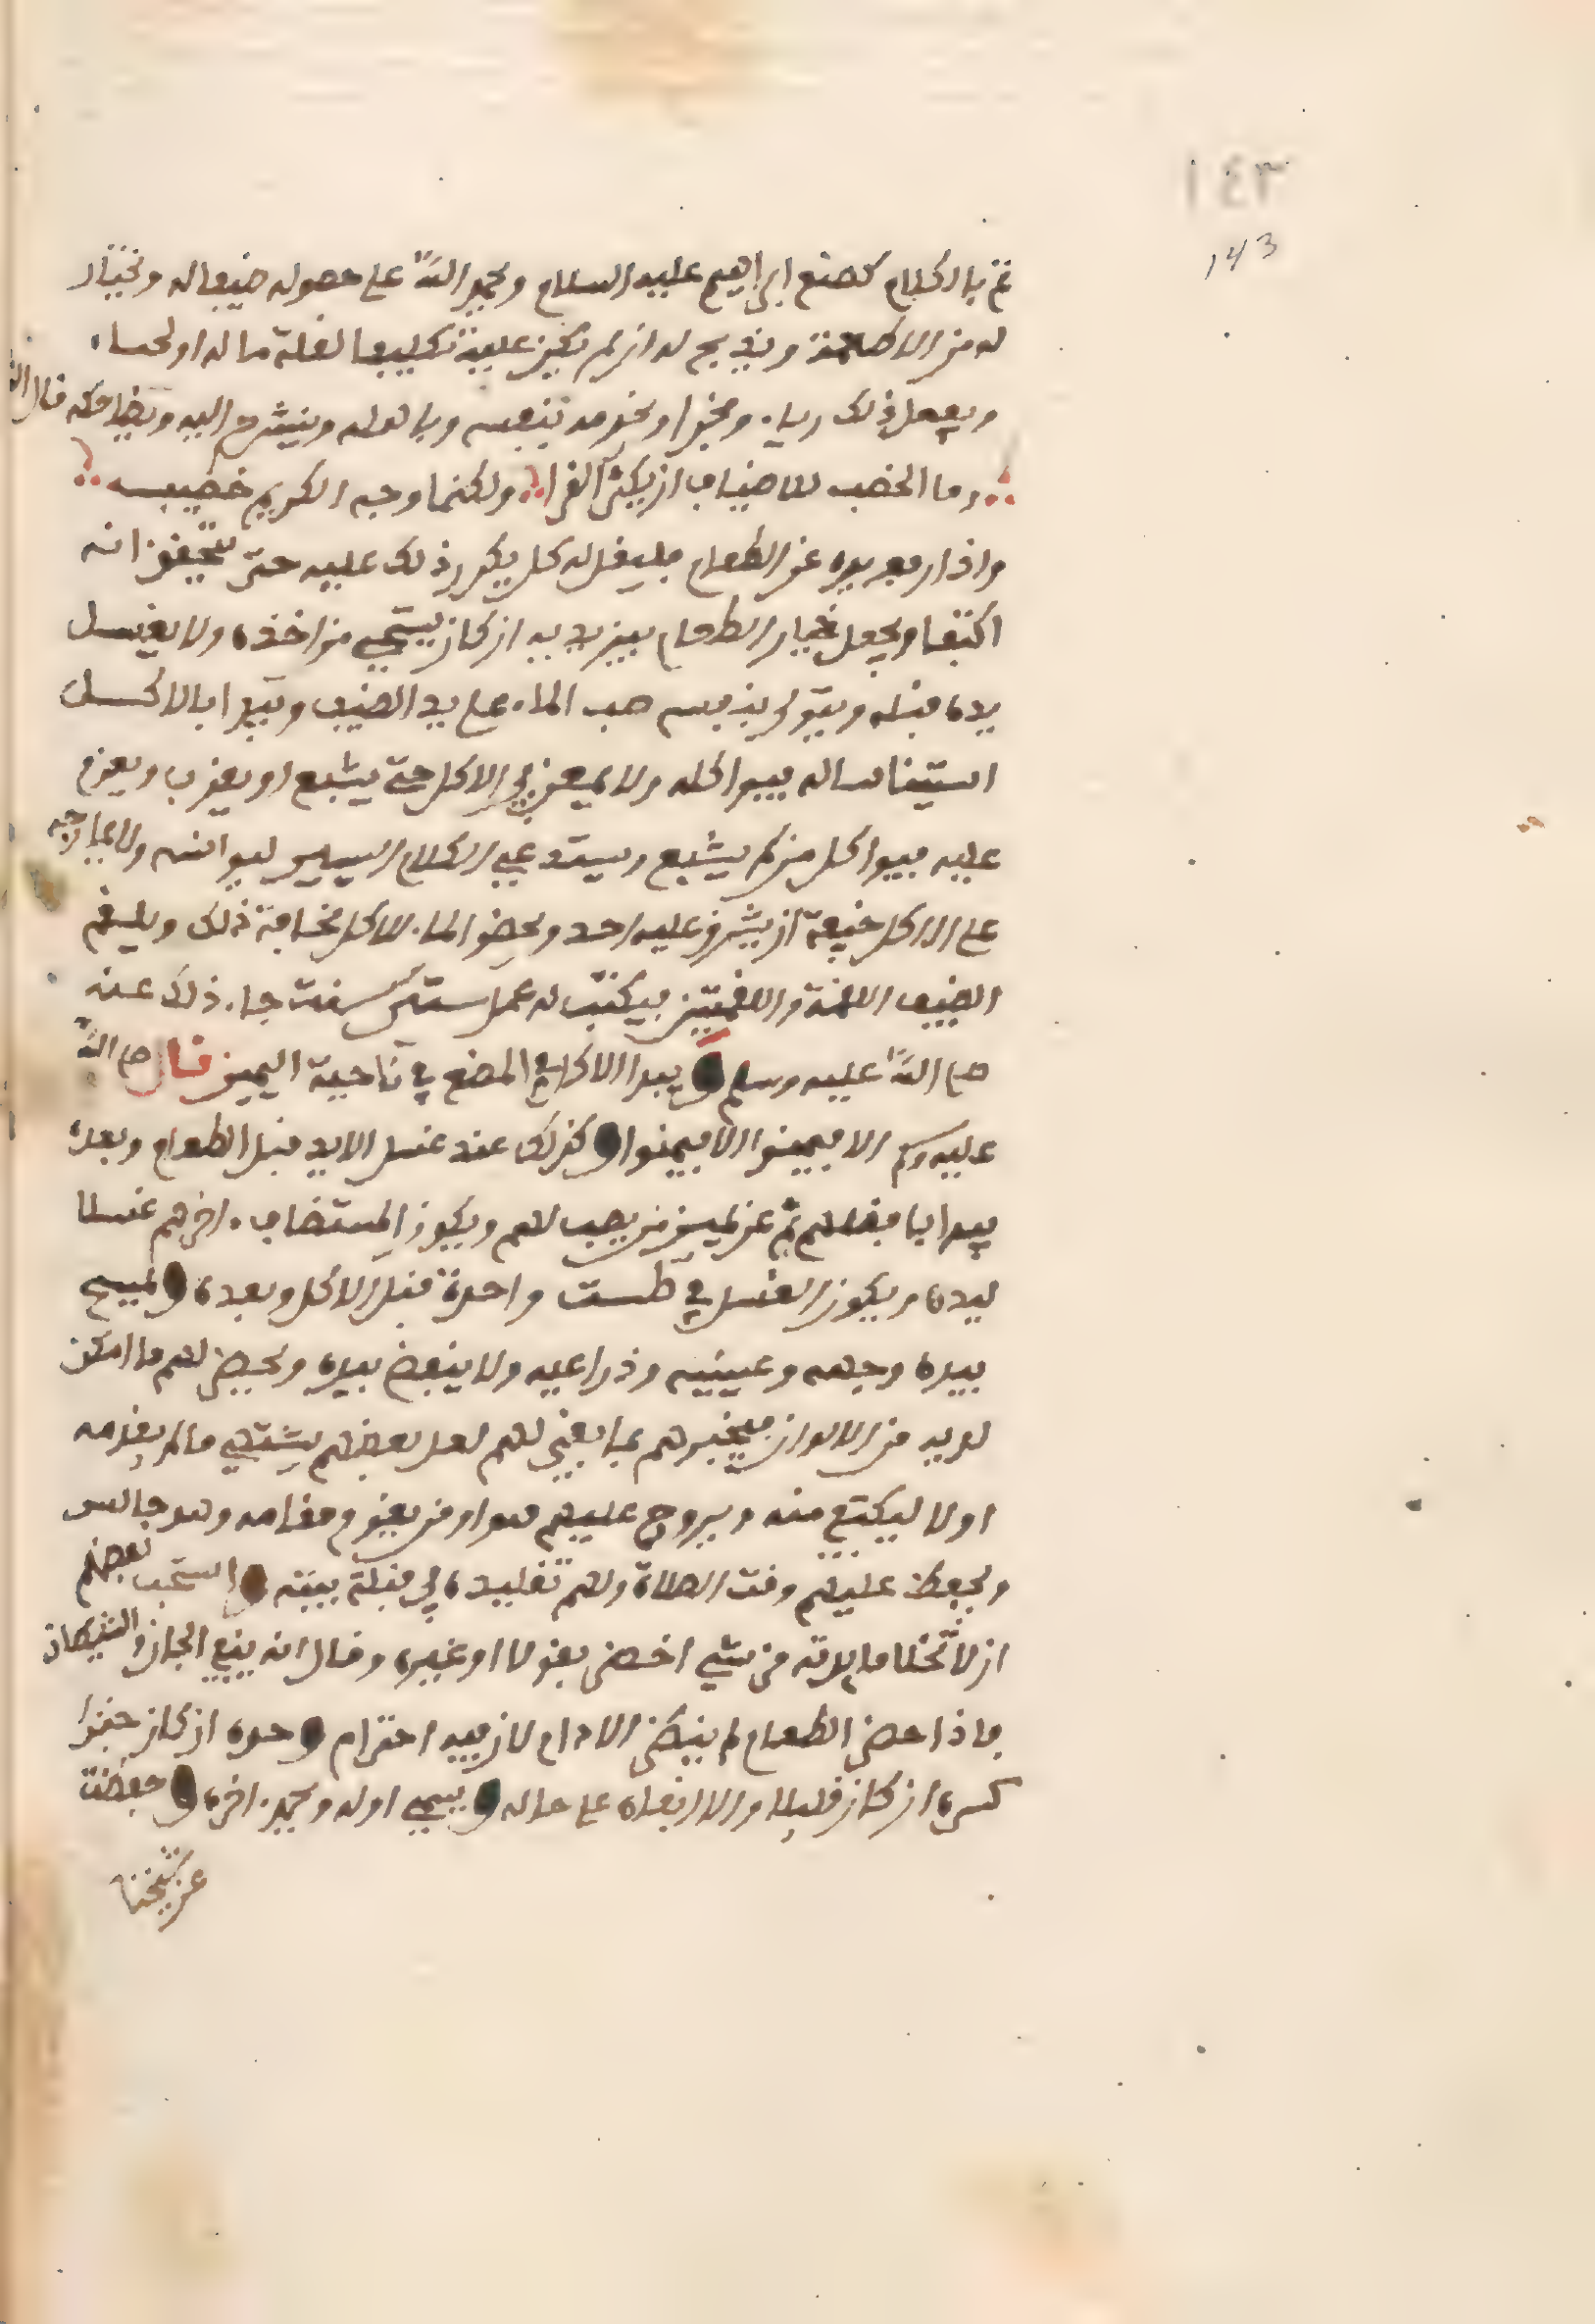 ١٤٣
143
ثم بالكلام كصنع ابراهيم عليه السلام ويحمد الله على حصوله ضيفا له ويختار
له من الاطعمة ويذبح له ان لم تكن عليه تكليفا لقلة ماله او لحياء
ويعمل ذلك رياء وفخرا ويخدمه بنفسه وباهله وينشرح اليه ويضاحكه قال
وما الخصب للاضياف ان يكثر القرا ولكنما وجه الكريم خصيب
واذا رفع يده عن الطعام فليقل له كل يكرر ذلك عليه حتى يتحقق انه
اكتفا ويجعل خيار الطعام بين يديه ان كان يستحيي من اخذه ولا يغسل
يده قبله ويتولى بنفسه صب الماء على يد الضيف ويبدا بالاكل
استيناسا له فيواكله ولا يمعن في الاكل حتى يشبع او يقرب ويعزم
عليه فيواكل من لم يشبع ويستدعي الكلام اليسير ليوانسه ولا
على الاكل خيفة ان يشرق عليه احد ويحضر الماء للاكل مخافة ذلك ويلقم
الضيف اللقمة واللقمتين فيكتب له عمل ستين سنة جاء ذلك عنه
صلى الله عليه وسلم ويبدا الاكل في المضغ في ناحية اليمين قال صلى الله
عليه وسلم الا فيمنوا الا فيمنوا وكذلك عند غسل الايدي قبل الطعام وبعده
يبدا بافضلهم ثم عن يمين من يصب لهم ويكون المستضاف اخرهم غسلا
ليده ويكون الغسل في طست واحدة قبل الاكل وبعده ولمسح
بيده وجهه وعينيه وذراعيه ولا ينفض بيده ويحضر لهم ما امكن
لديه من الالوان فيخبرهم بما بقي لهم لعل بعضهم يشتهي ما لم يقدمه
اولا ليكتع منه ويروح عليهم هو او من يقوم مقامه وهو جالس
ويحفظ عليهم وقت الصلاة ولهم تقليده في قبلة بيته واستحب بعضهم
ان لا تخلا مايدته من شيء اخضر بقولا او غيره وقال انه ينفي الجان والشيطان
فاذا حضر الطعام لم ينتظر الادام لان فيه احترام وحده ان كان خبزا
كسره ان كان قليلا والا ابقاه على حاله ويسمي اوله ويحمد اخره وحفظت
عن شيخنا